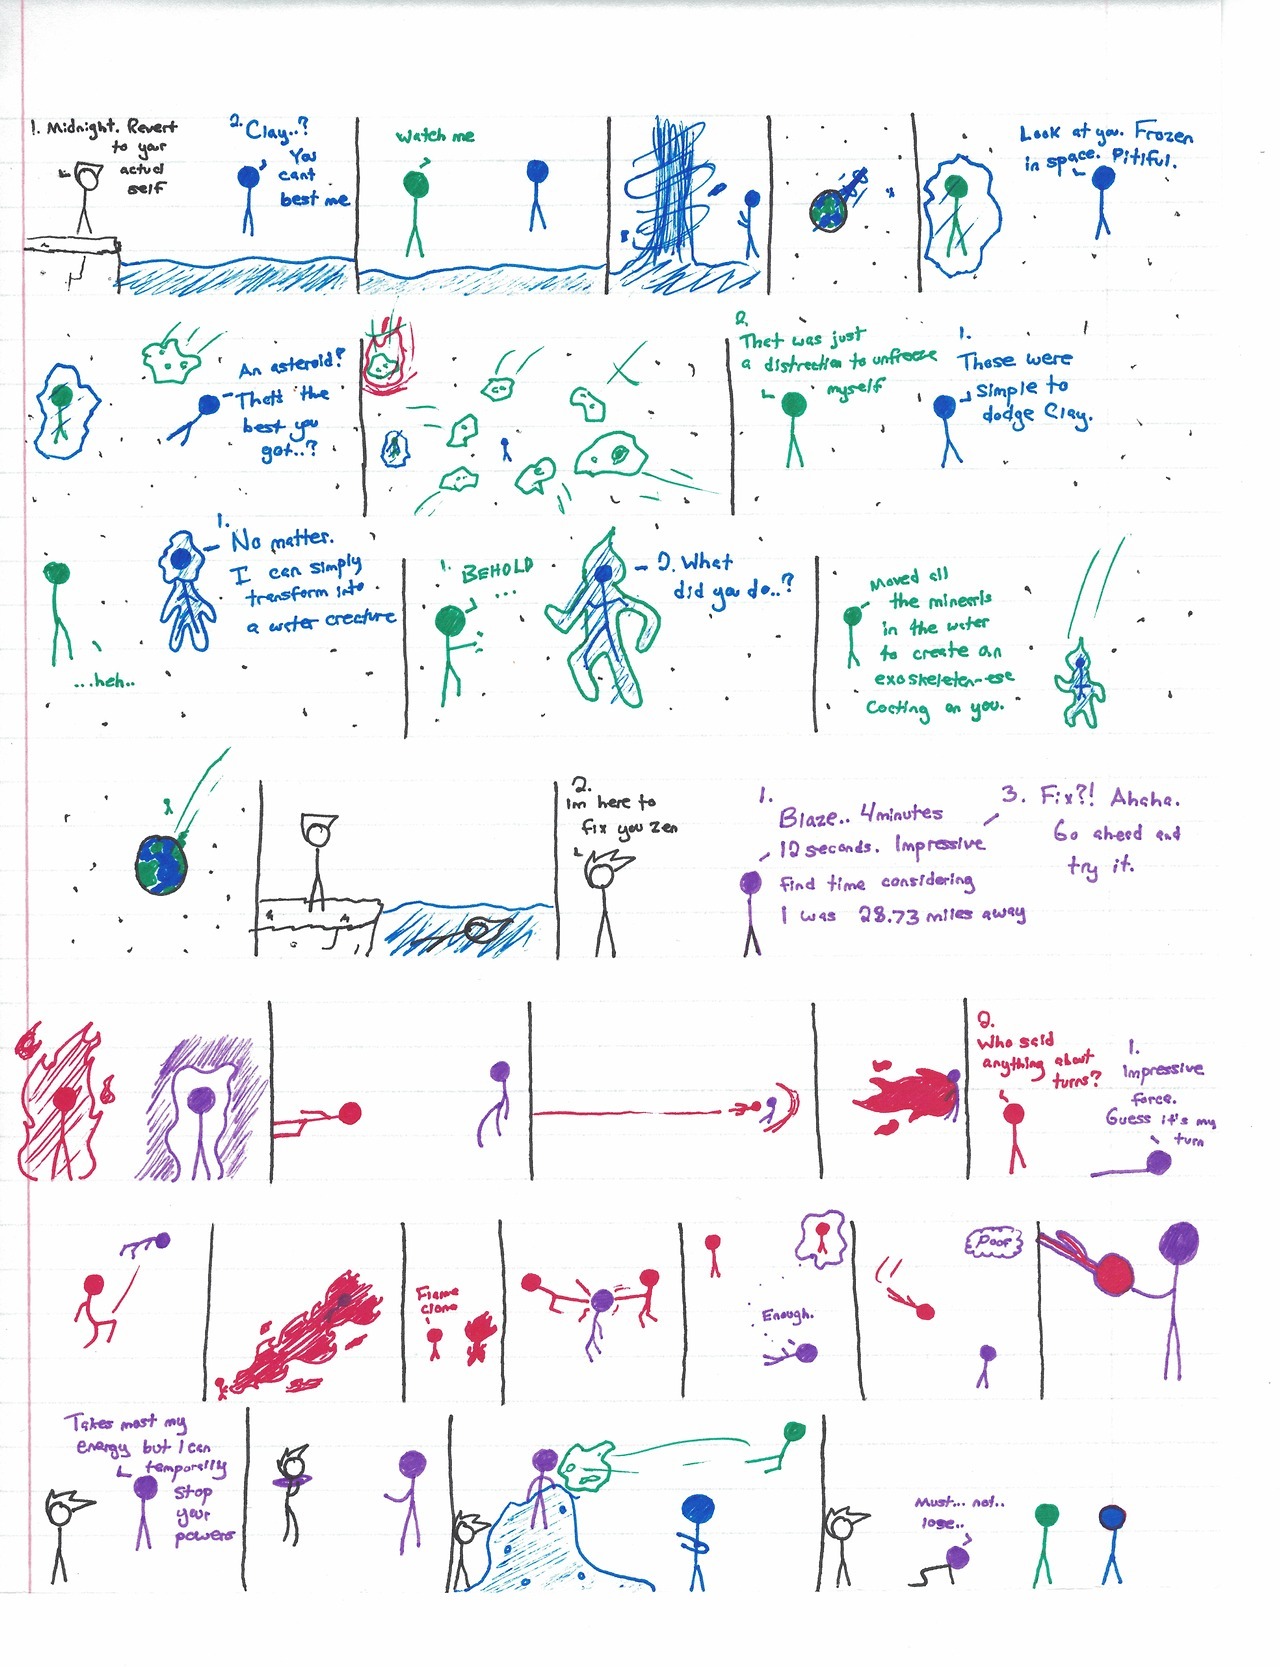 1. Midnight. Revert
to your
actual
self
2. Clay..?
You
cant
best me
Watch me
Look at you. Frozen
in space. Pitiful.
An asteroid?
Thats the
best you
got..?
2.
That was just
a distraction to unfreeze
myself
1.
Those were
simple to
dodge Clay.
...heh..
1.
No matter.
I can simply
transform into
a water creature
1. BEHOLD
...
2. What
did you do..?
Moved all
the minerls
in the water
to create an
exoskeleton-ese
Coating on you.
2.
Im here to
fix you Zen
1.
Blaze.. 4minutes
12 seconds. Impressive
find time considering
I was 28.73 miles away
3. Fix?! Ahaha.
Go ahead and
try it.
2.
Who said
anything about
turns?
1.
Impressive
force.
Guess it's my
turn
Flame
clone
Enough.
Poof
Takes most my
energy but I can
temporally
stop
your
powers
Must... not..
lose..